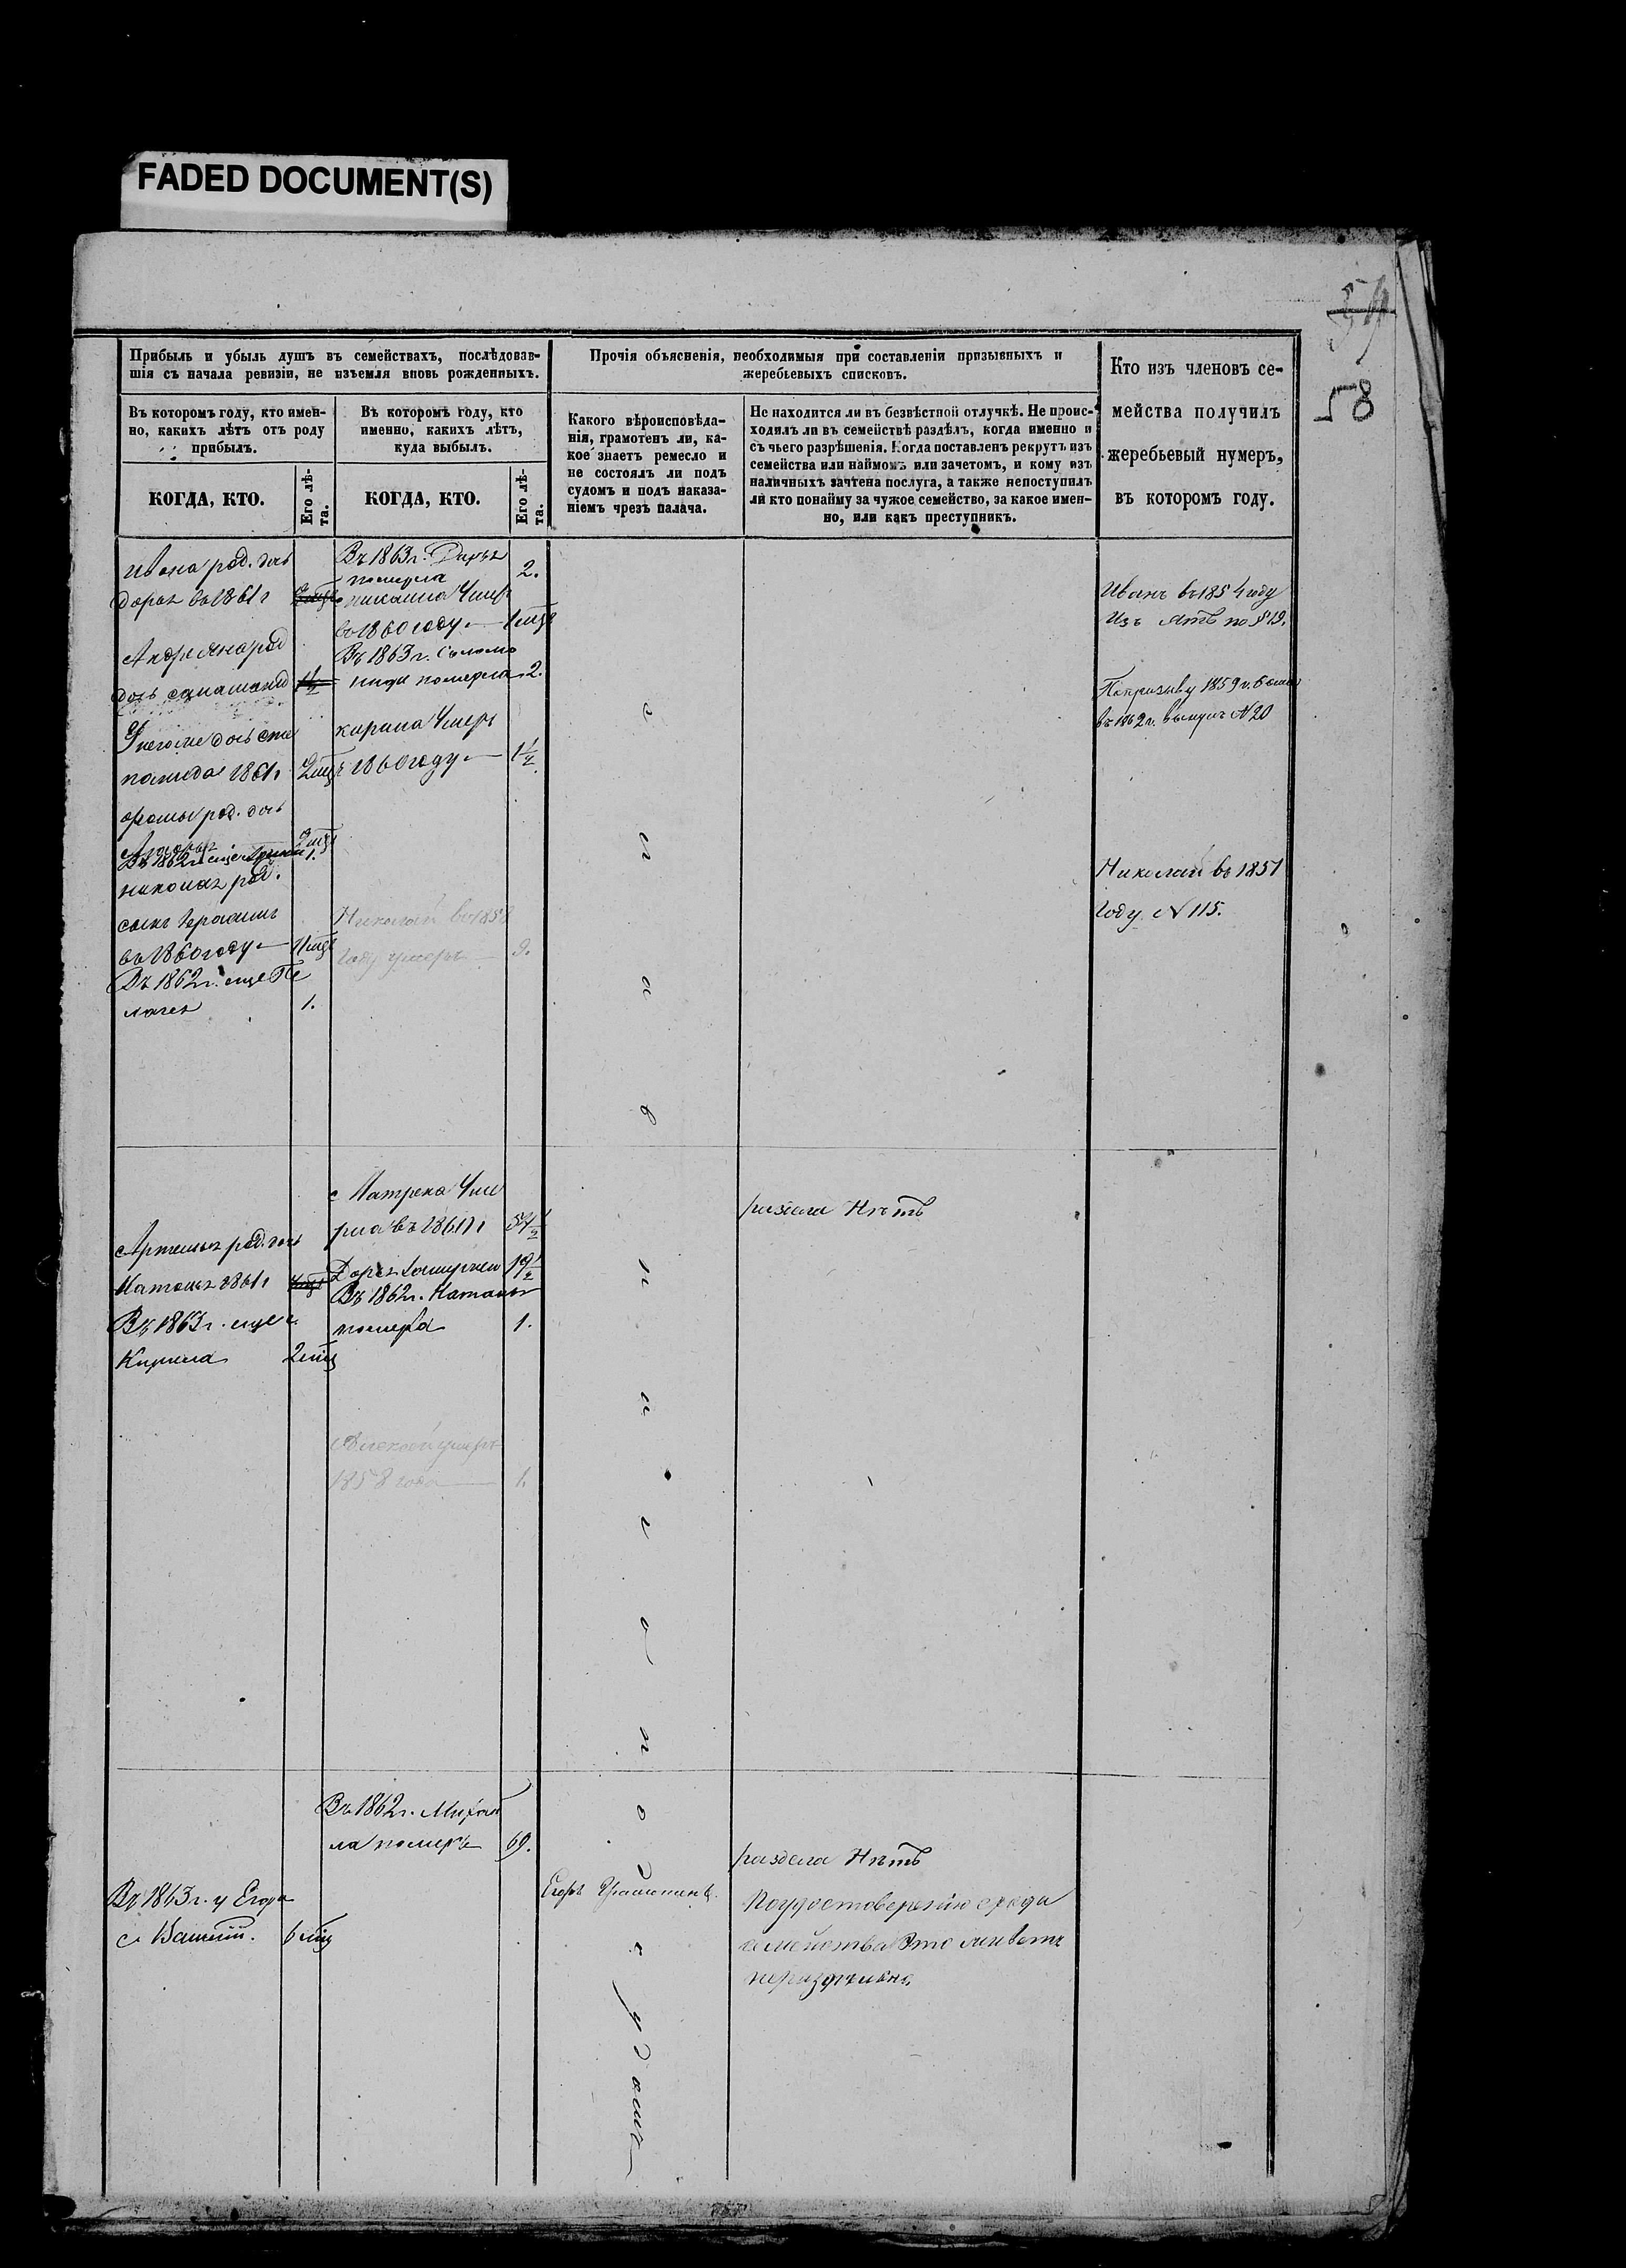 FADED DOCUMENT(S)
54
58
Прибыль и убыль душъ въ семействахъ, послѣдовав-
шія съ начала ревизіи, не изъемля вновь рожденныхъ.
Прочія объясненія, необходимыя при составленіи призывныхъ и
жеребьевыхъ списковъ.
Кто изъ членовъ се-
мейства получилъ
жеребьевый нумеръ,
въ которомъ году.
Въ которомъ году, кто имен-
но, какихъ лѣтъ отъ роду
прибылъ.
Въ которомъ году, кто
именно, какихъ лѣтъ,
куда выбылъ.
Какого вѣроисповѣда-
нія, грамотенъ ли, ка-
кое знаетъ ремесло и
не состоялъ ли подъ
судомъ и подъ наказа-
ніемъ чрезъ палача.
Не находится ли въ безвѣстной отлучкѣ. Не проис-
ходилъ ли въ семействѣ раздѣлъ, когда именно и
съ чьего разрѣшенія. Когда поставленъ рекрутъ изъ
семейства или наймомъ или зачетомъ, и кому изъ
наличныхъ зачтена послуга, а также непоступилъ
ли кто понайму за чужое семейство, за какое имен-
но, или какъ преступникъ.
КОГДА, КТО.
Его лѣ-
та.
КОГДА, КТО.
Его лѣ-
та.
Ивана род. дочь
Дарья въ 1861 г
Андреяна род
дочь
дочь сте
панида 1861 г 2 мѣс
фомы род. дочь
Въ 1862 г. еще 1.
николая род.
сынъ Герасимъ
въ 1860 году 11 мѣс
Въ 1862 г. еще Пе
лагея 1.
Въ 1863 г. Дарья
померла 2.
умеръ
въ 1860 году 1 мѣс
Въ 1863 г. Соломо
нида померла 2.
кирила Умеръ
1860 году 1 1/2
Николай въ 1858
году умеръ 9.
Иванъ въ 1854 году
Изъ лѣтъ по § 19.
По призыву 1859 г.
въ 1862 г. вынулъ N 20
Николай въ 1851
Году N 115.
Артемья род. дочь
Наталья 1861 г
Въ 1863 г. еще
Кирила 2 мѣс
Матрена Уме
рла въ 1861 г 54 1/2
Дарья 19 1/2
Въ 1862 г. Наталья
померла 1.
Алексей умеръ
1858 года 1.
раздела Нѣтъ
Въ 1862 г. Михай
ла померъ 69.
Въ 1863 г. у Егора
с. Василій. 6 мѣс
Егоръ Грамотенъ.
раздела Нѣтъ
По удостоверению схода
семейства Это живетъ
нераздѣльно